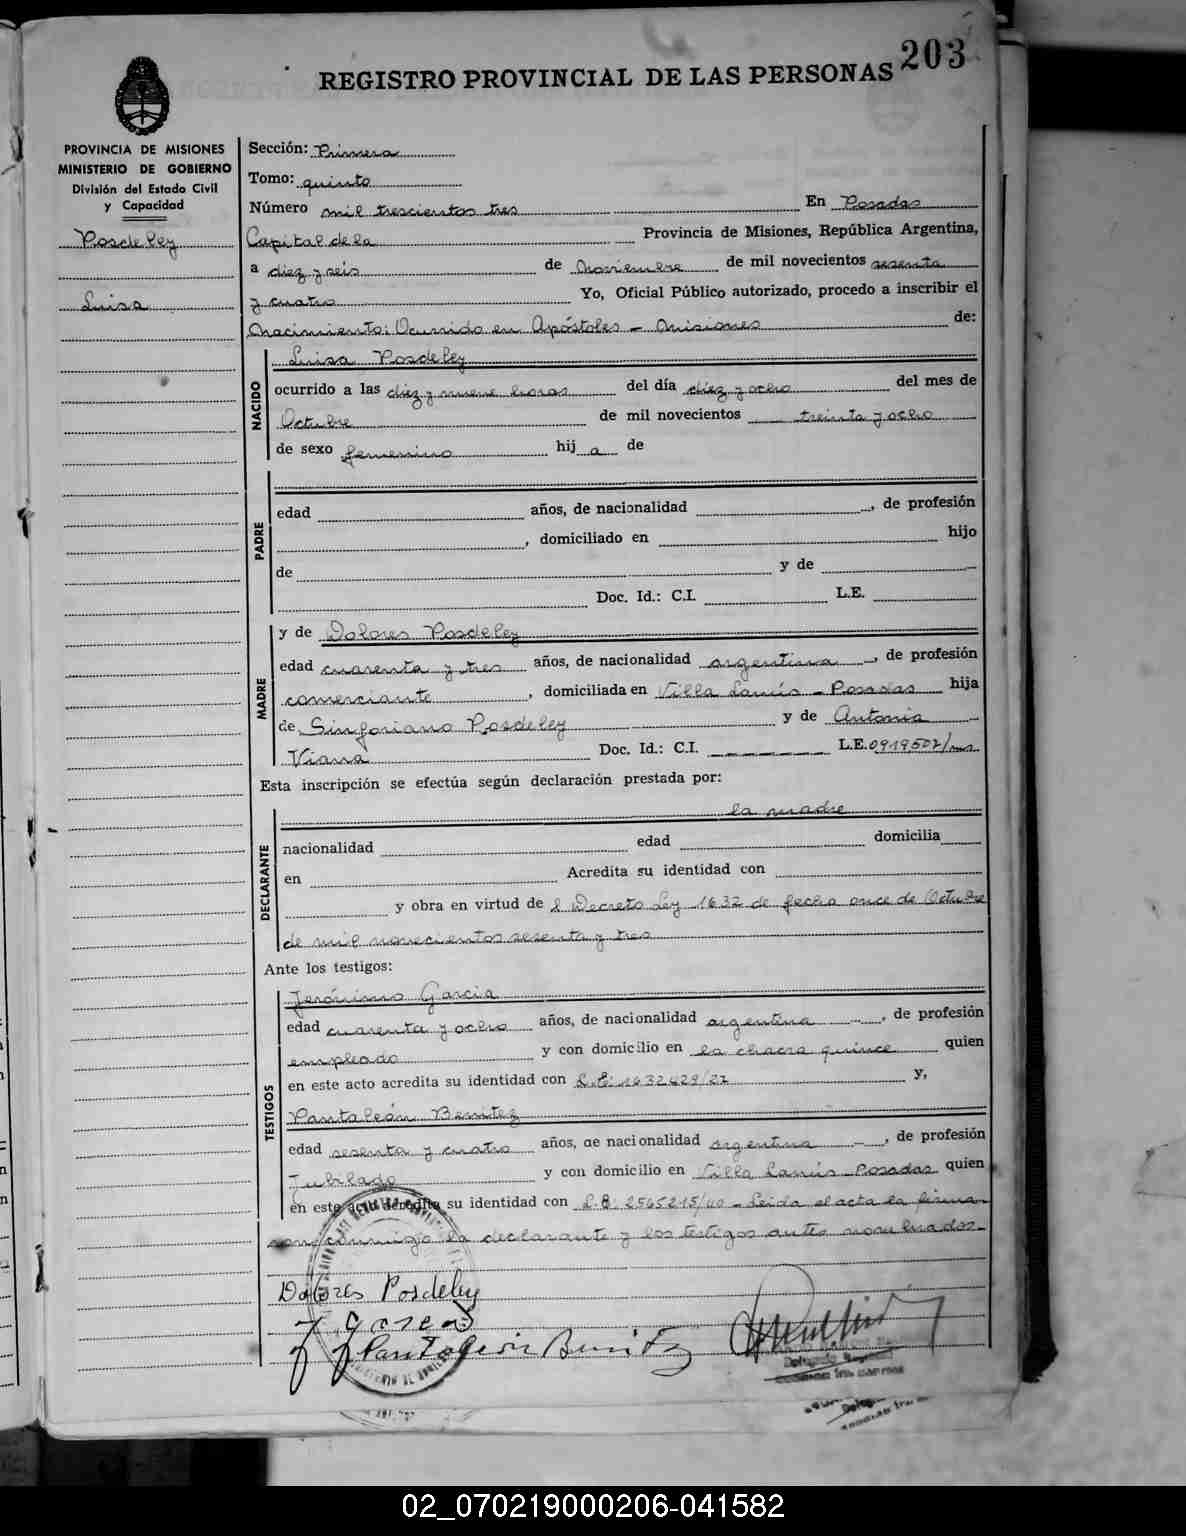 203
REGISTRO PROVINCIAL DE LAS PERSONAS
PROVINCIA DE MISIONES
MINISTERIO DE GOBIERNO
División del Estado Civil
y Capacidad
Posdeley
Luisa
Sección: Primera
Tomo: quinto
Número mil trescientos tres En Posadas
Capital de la Provincia de Misiones, República Argentina,
a diez y seis de Noviembre de mil novecientos sesenta
y cuatro Yo, Oficial Público autorizado, procedo a inscribir el
Nacimiento: Ocurrido en Apóstoles - Misiones de:
NACIDO
Luisa Posdeley
ocurrido a las diez y nueve horas del día diez y ocho del mes de
Octubre de mil novecientos treinta y ocho
de sexo femenino hij a de
PADRE
edad años, de nacionalidad , de profesión
, domiciliado en hijo
de y de
Doc. Id.: C.I. L.E.
MADRE
y de Dolores Posdeley
edad cuarenta y tres años, de nacionalidad argentina , de profesión
comerciante , domiciliada en Villa Lanús - Posadas hija
de Sinforiano Posdeley y de Antonia
Viana Doc. Id.: C.I. L.E. 0919502/
Esta inscripción se efectúa según declaración prestada por:
DECLARANTE
la madre
nacionalidad edad domicilia
en Acredita su identidad con
y obra en virtud de l Decreto Ley 1632 de fecha once de Octubre
de mil novecientos sesenta y tres
Ante los testigos:
TESTIGOS
Jerónimo Garcia
edad cuarenta y ocho años, de nacionalidad argentina , de profesión
empleado y con domicilio en la chacra quince quien
en este acto acredita su identidad con L.E: 1632429/27 y,
Pantaleón Benitez
edad sesenta y cuatro años, de nacionalidad argentina , de profesión
Jubilado y con domicilio en Villa Lanús - Posadas quien
en este acto acredita su identidad con L.E: 2565215/40 - Leida el acta la firman
conmigo la declarante y los testigos antes nombrados-
Dolores Posdeley
J. Garcia
Pantaleón Benitez
02_070219000206-041582